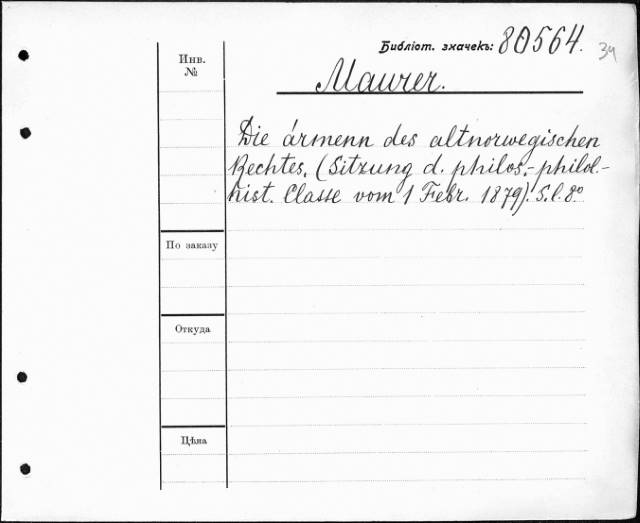 Библіот. значекъ: 80564.
34
Инв.
№
Maurer.
Die ármenn des altnorwegischen
Rechtes. (Sitzung d. philos.-philol.-
hist. Classe vom 1 Febr. 1879). S. l. 8º
По заказу
Откуда
Цѣна